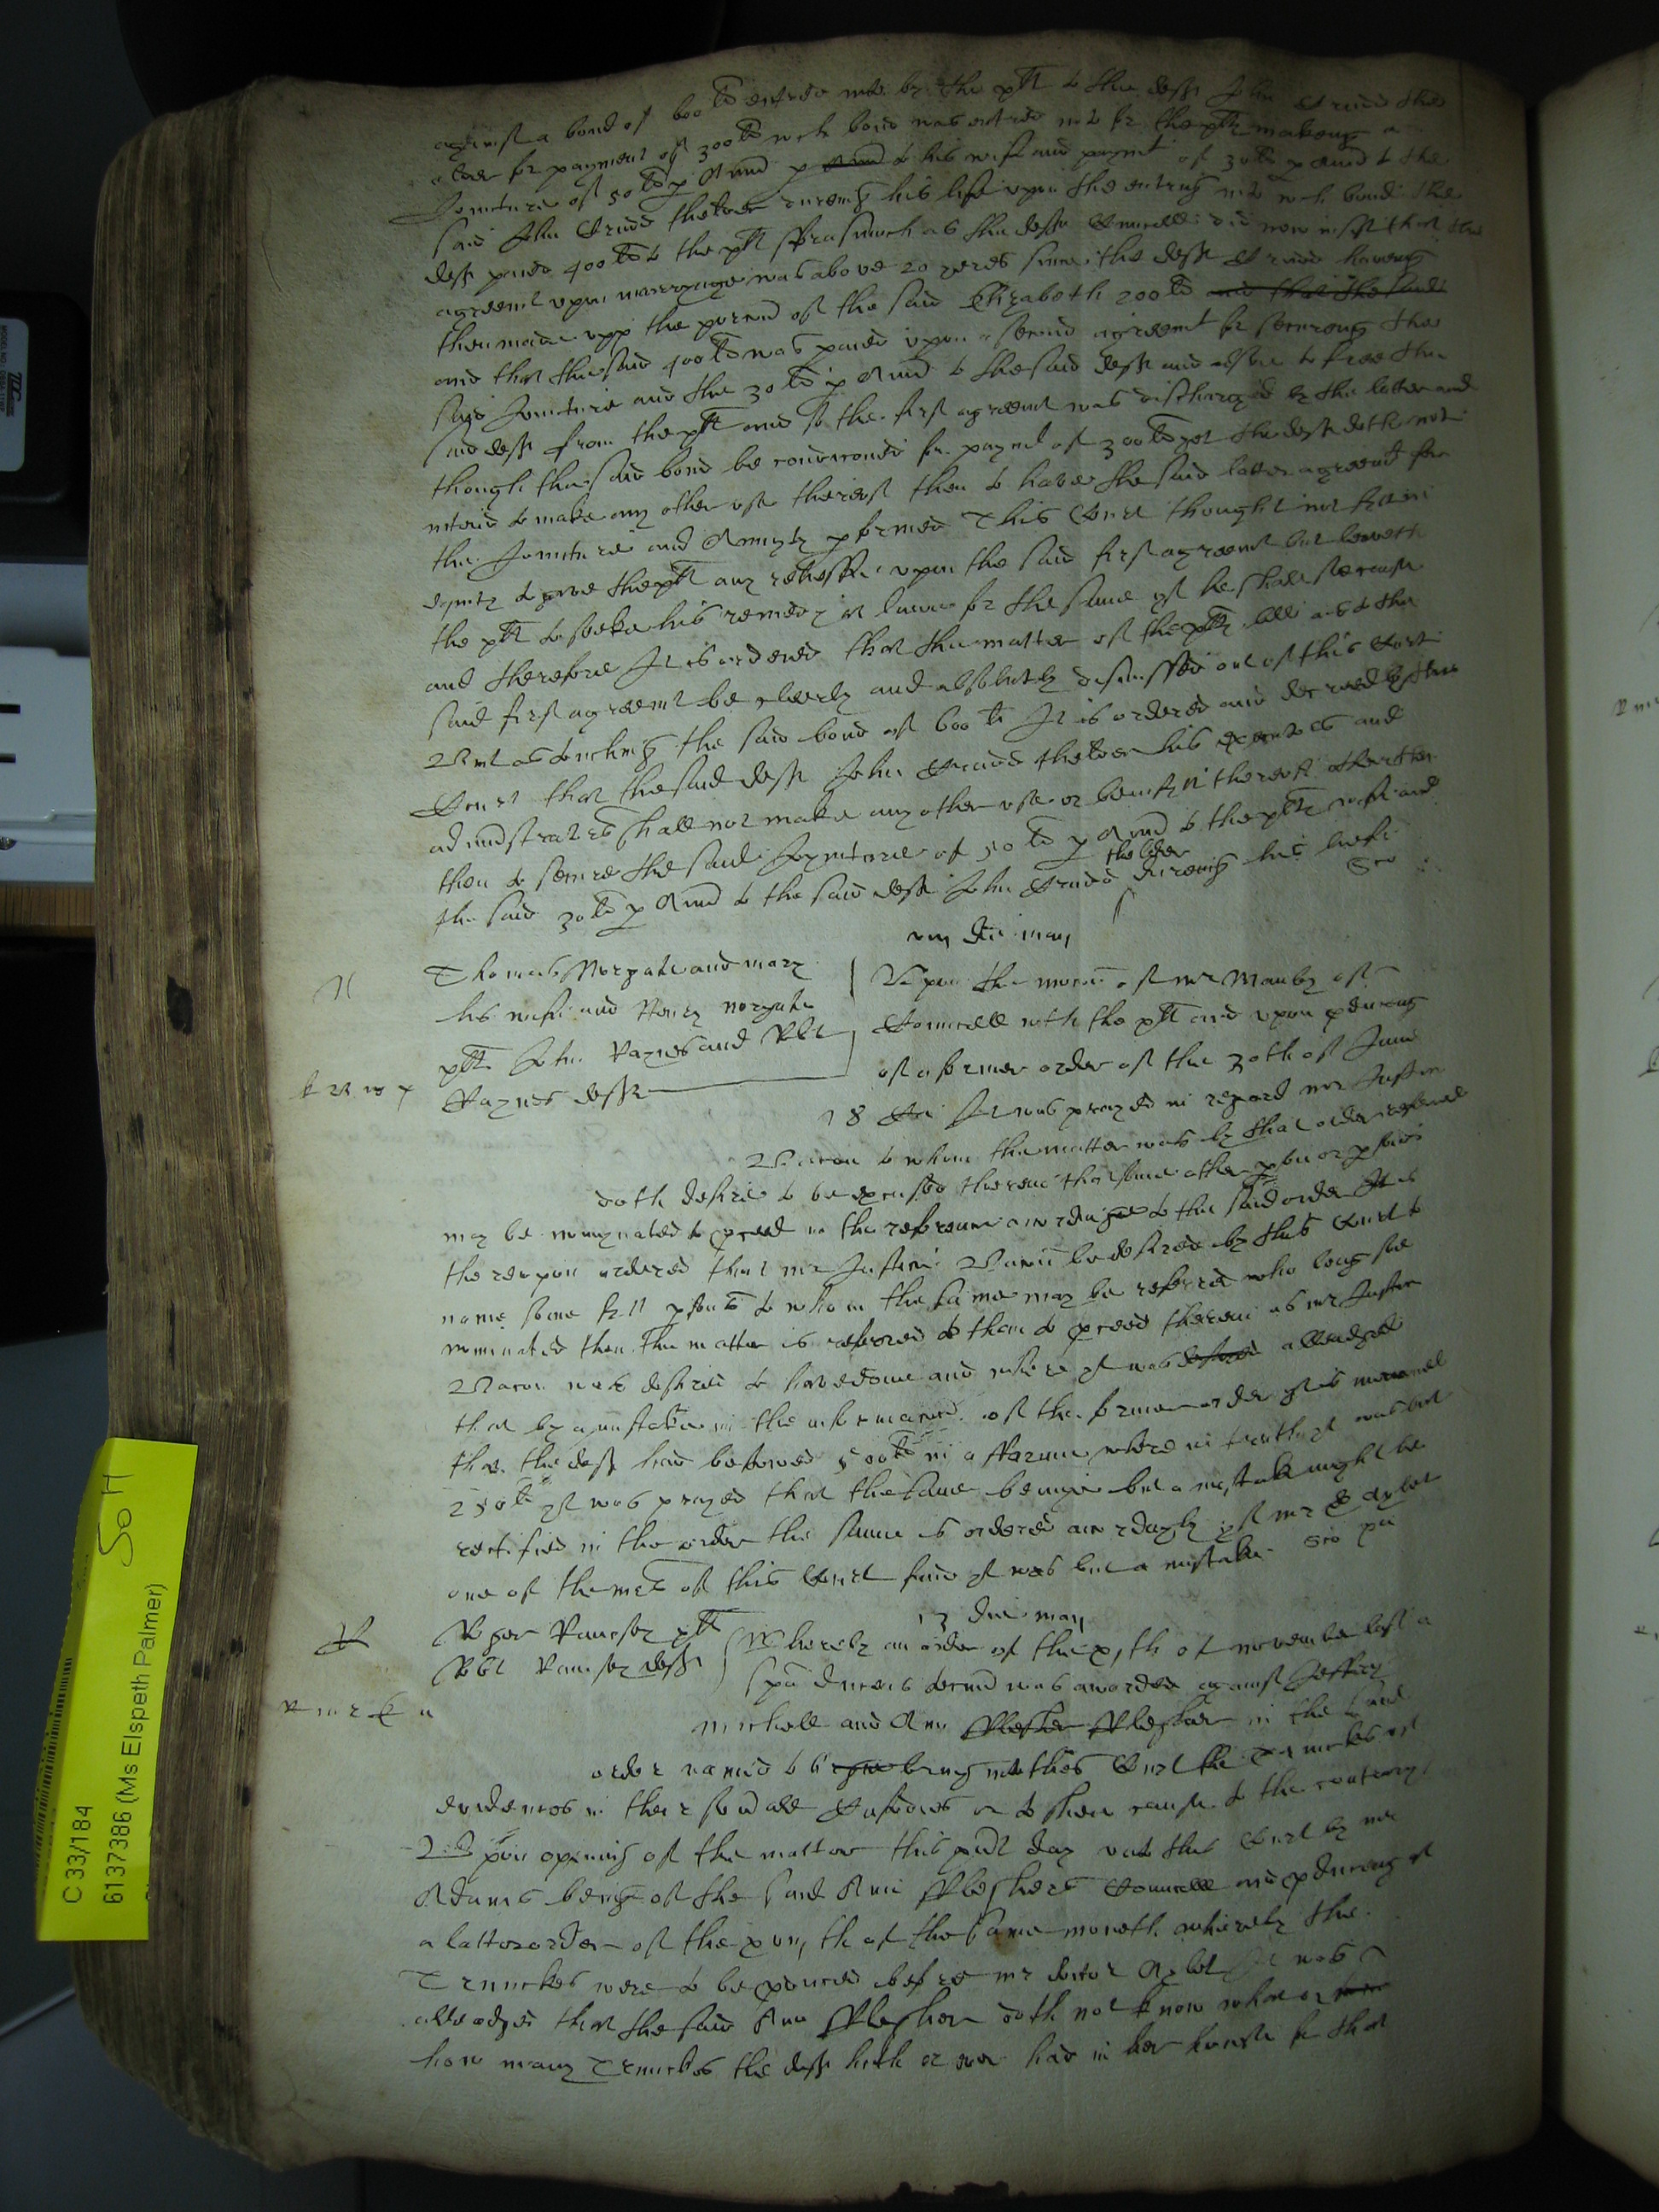 against a bond of 600li entred into by the plt to the deft John Crud the
elder for payment of 300li wch bond was entred into for the plts makeing a
Joincture of 50li p Annu to his wife and paymt of 30li p Annu to the
said John Crud thelder dureing his life upon the entring into wch bond the
deft paied 400li to the plt fforasmuch as the defts Councell did now insist that the
agreemt upon marryage was above 20 yeres since the deft Crud haveing
then made upp the porcon of the said Elizabeth 200li and that the said
and that the said 400li was paied upon a second agreemt for secureing the
said Joincture and the 30li p Annu to the said deft and alsoe to free the
said deft from the plt and so the first agreemt was discharged by the latter and
though the said bond be condiconed for paymt of 300li yet the deft doth not
intend to make any other use thereof then to have the said latter agreemt for
the Joincture and Annuity pformed This Court thought not fitt in
equity to give the plt any releiffe upon the said first agreemt but leaveth
the plt to seeke his remedy at lawe for the same yf he shall see cause
and therefore It is ordered that the matter of the plts bill as to the
said first agreemt be cleerly and absolutely dismissed out of this Court
But as touching the said bond of 600li It is ordered and decreed by this
Court that the said deft John Crud thelder his executors and
administrators shall not make any other use or benefitt thereof other
then to secure the said Joyncture of 50li p Annu to the plts wife and
the said 30li p Annu to the said deft John Crud the elder dureing his liefe
viij die maij
N Thomas Norgate and mary
his wife and Henry norgate
plts John Paynes and Robt
Paynes defts
Upon the mocon of mr Mauby of
Councell with the plt and upon pduceing
of a former order of the 30th of June
18 Car It was prayed in regard mr Justice
Bacon to whom the matter was by that order referred
doth desire to be excused therein that some other pson or psons
may be nominated to pceed in the reference according to the said order It is
thereupon ordered that mr Justice Bacon be desired by this Court to
name some fitt psons to whom the same may be referred who being soe
nominated then the matter is referred to them to pceed therein as mr Justice
Bacon was desired to have done and where yt was desired alleadged
that by a mistake in the informacon of the former order yt is menconed
that the deft had bestowed 500li in a ffarme where in truth yt was but
250li yt was prayed that the same being but a mistake might be
rectified in the order the same is ordered accordingly yf mr D Aylet
one of the mrs of this Court find yt was but a mistake
13 die maij
R Roger Ramsey plt
Robt Ramsey deft
Whereby an order of the xjth of november last a
Spa duces tecum was awarded against Jeffery
michell and Ann Fflesher Fflesher in the said
order named to bring bring into this Court the Trunckes of
evidences in their severall Custodies or to shew cause to the contrary
Upon opening of the matter this psent day unto this Court by mr
Adams being of the said Ann Ffleshers Councell and pduceing of
a latter order of the xviijth of the same moneth whereby the
Trunckes were to be pduced before mr doctor Aylet It was
alleadged that the said Ann Fflesher doth not know what or
how many Trunckes the deft hath or ever had in her house for that
C 33/184
6137386 (Ms Elspeth Palmer)
SoH